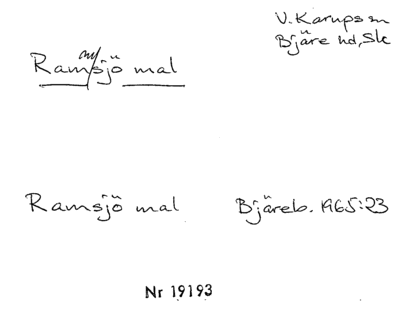 V. Karups sn
Bjäre hd, Sk
Ramsjö mal
Ramsjö mal Bjäreb. 1965:23
Nr 19193